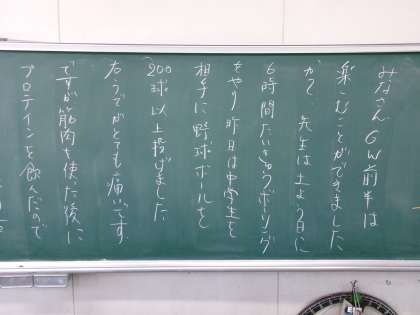 みなさん GW前半は
楽しむことができました
かで 先生は土よう日に
6時間たいきゅうボーリング
をやり 昨日は中学生を
相手に野球ボールを
200球以上投げました
右うでがとても痛いです
ですが筋肉を使った後に
プロテインを飲んだので